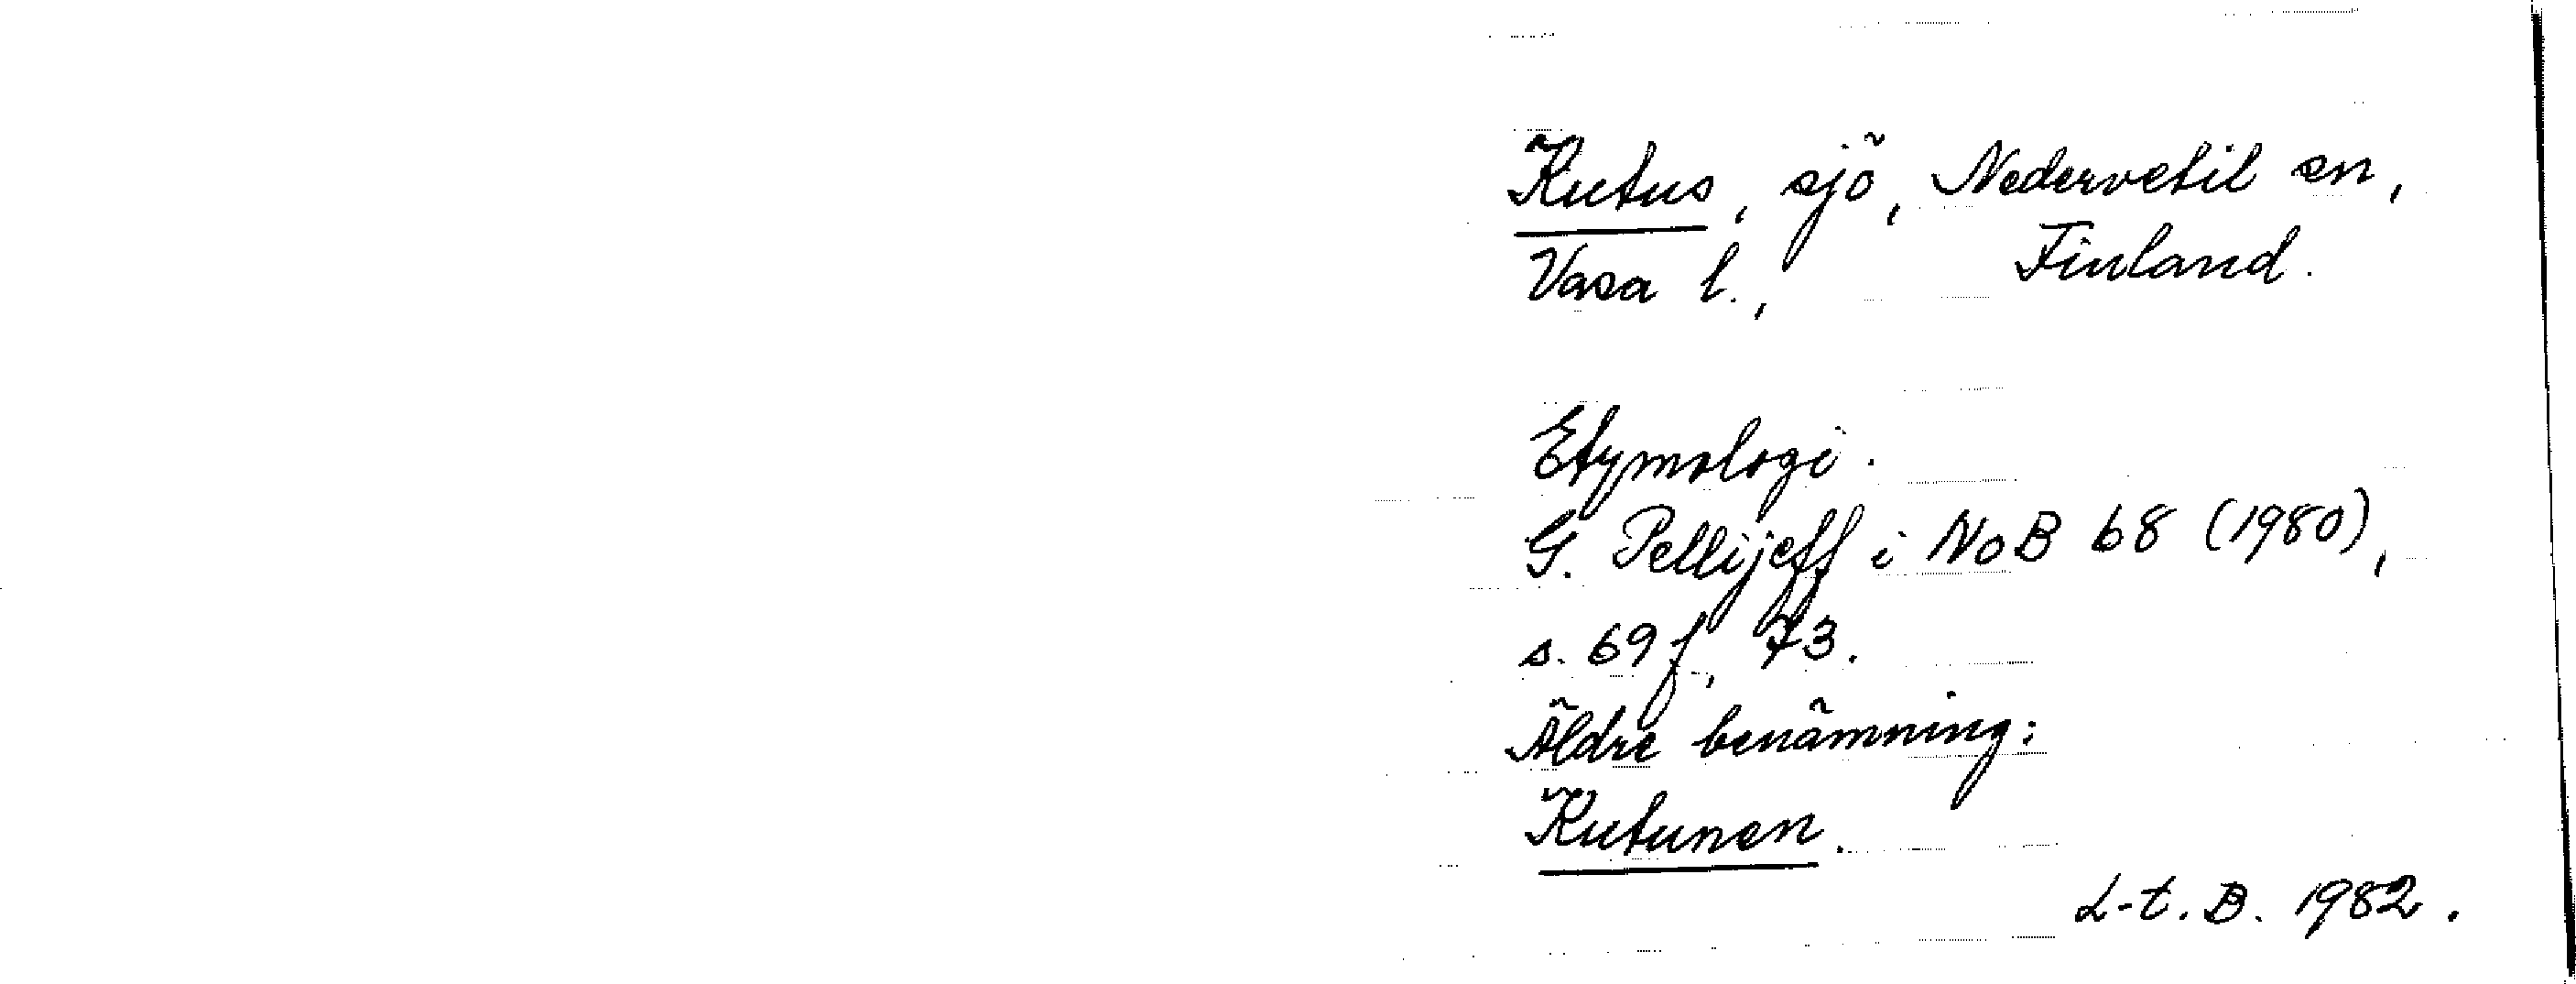 Kutus, sjö, Nedervetil sn,
Vasa l., Finland.
Etymologi.
G. Pellijeff i NoB 68 (1980),
s. 69 f, 73.
Äldre benämning:
Kutunen.
L-t. B. 1982.